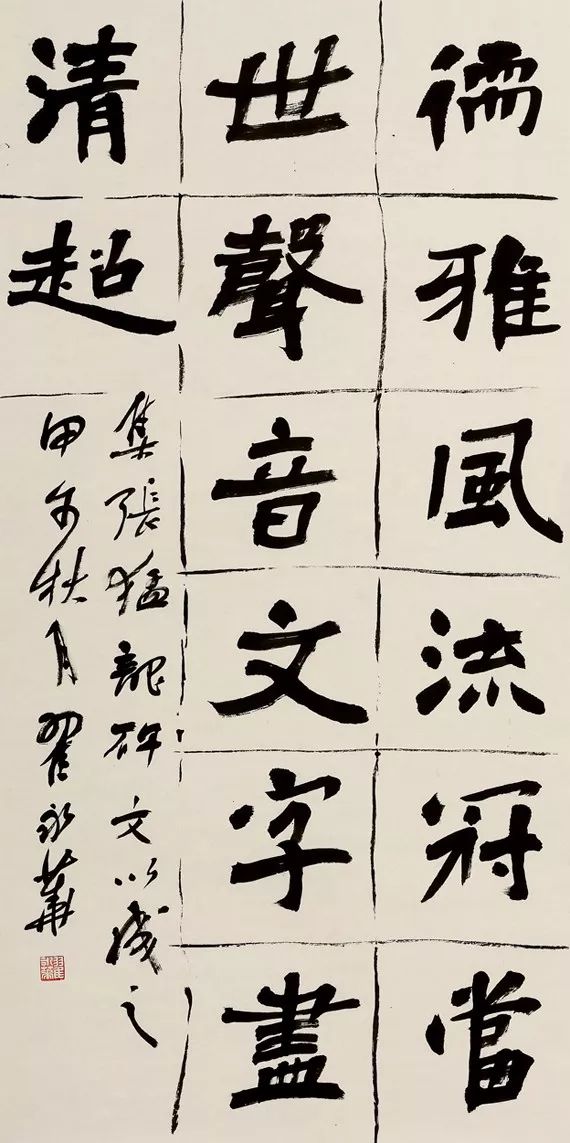 儒雅風流冠當
世聲音文字盡
清超
集張猛龍碑文以成之
甲午秋月翟永華